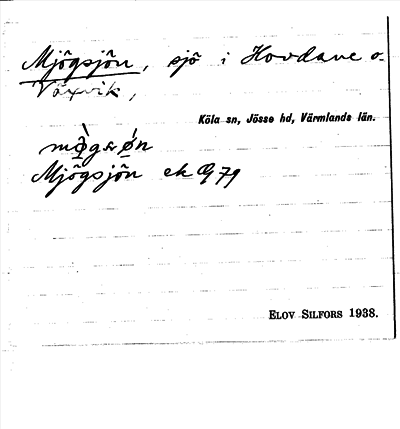 Mjögsjön, sjö i Hovdane o.
Växvik,
Köla sn, Jösse hd, Värmlands län.
Mjögsjön ek G 79
ELOV SILFORS 1938.